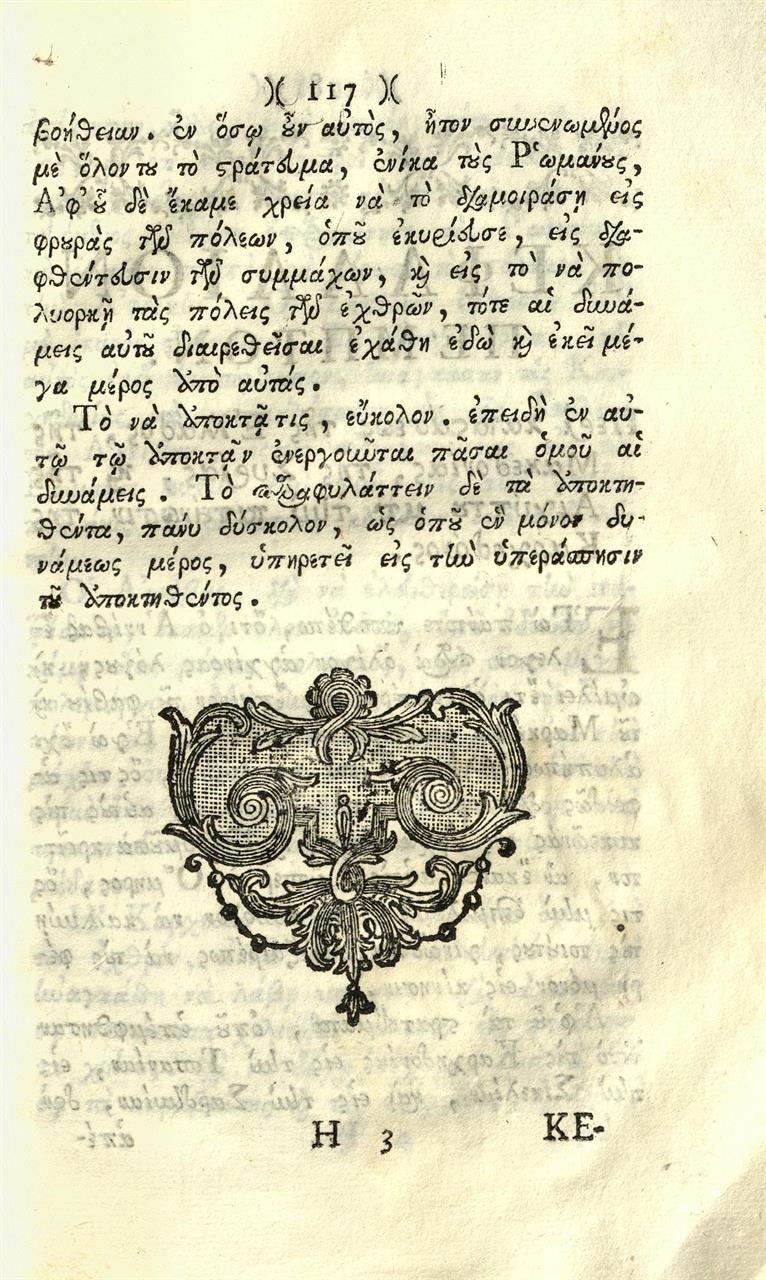 )( 117 )(
βοήθειαν. ἐν ὅσῳ οὖν αὐτὸς, ἦτον συνενωμένος
μὲ ὅλον του τὸ στράτευμα, ἐνίκα τοὺς Ῥωμάνους,
Ἀφ᾿ οὗ δὲ ἔκαμε χρεία νὰ τὸ διαμοιράσῃ εἰς
φρουρὰς τῶν πόλεων, ὁποῦ ἐκυρίευσε, εἰς δια-
φθέντευσιν τῶν συμμάχων, καὶ εἰς τὸ νὰ πο-
λυορκῇ τὰς πόλεις τῶν ἐχθρῶν, τότε αἱ δυνά-
μεις αὐτοῦ διαιρεθεῖσαι ἐχάθη ἐδῶ καὶ ἐκεῖ μέ-
γα μέρος ἀπὸ αὐτάς.
Τὸ νὰ ἀποκτᾷ τις, εὔκολον. ἐπειδὴ ἐν αὐ-
τῷ τῷ ἀποκτᾷν ἐνεργοιοῦνται πᾶσαι ὁμοῦ αἱ
δυνάμεις. Τὸ διαφυλάττειν δὲ τὰ ἀποκτη-
θέντα, πάνυ δύσκολον, ὡς ὁποῦ ἓν μόνον δυ-
νάμεως μέρος, ὑπηρετεῖ εἰς τὴν ὑπεράσπησιν
τοῦ ἀποκτηθέντος.
Η 3
ΚΕ-